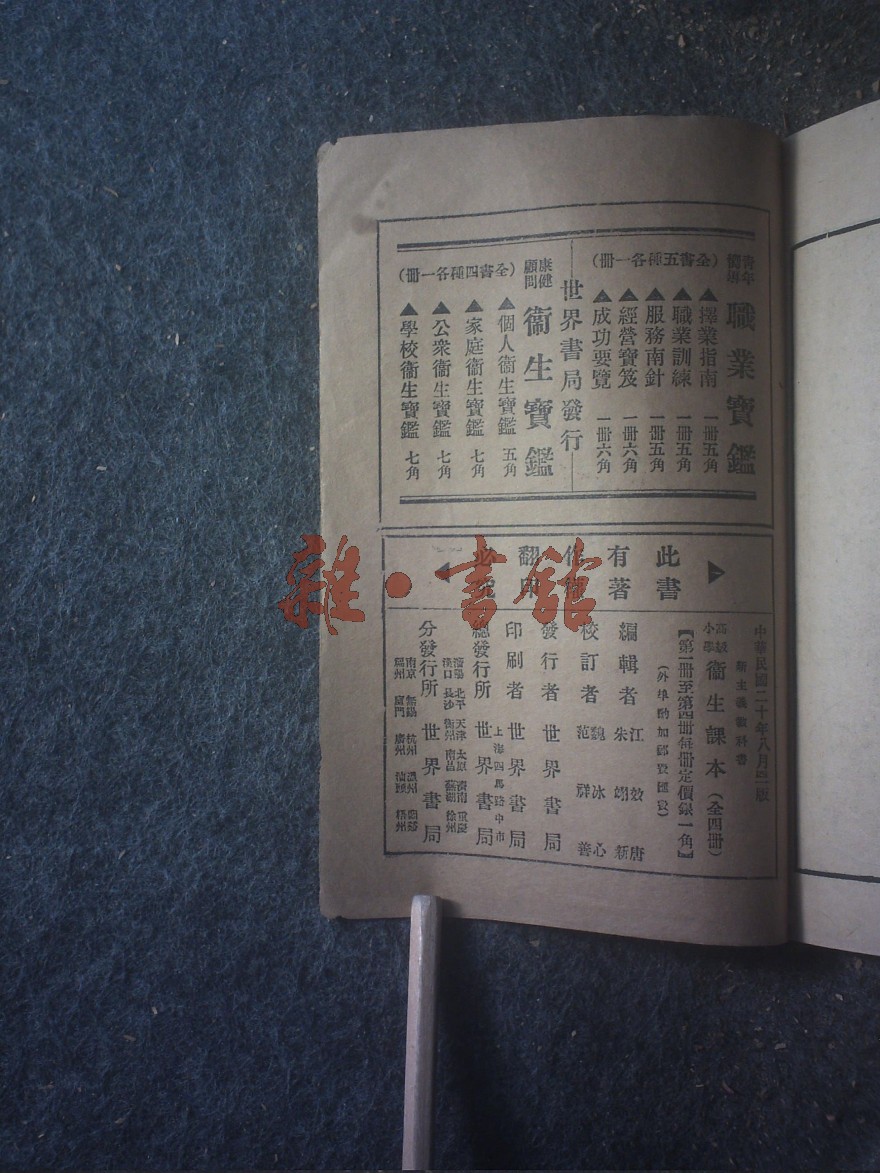 青年
職業寶鑑
(全書五種各一冊)
▲擇業指南 一冊五角
▲職業訓練 一冊五角
▲服務南針 一冊五角
▲經營寶笈 一冊六角
▲成功要覽 一冊六角
世界書局發行
康健顧問
衞生寶鑑
(全書四種各一冊)
▲個人衞生寶鑑 五角
▲家庭衞生寶鑑 七角
▲公衆衞生寶鑑 七角
▲學校衞生寶鑑 七角
此書
有著
作權
翻印
必究
中華民國二十年八月三版
新主義教科書
高級小學
衞生課本(全四冊)
【第一冊至第四冊每冊定價銀一角】
(外埠酌加郵費匯費)
編輯者 江效唐 朱翊新
校訂者 魏冰心 范祥善
發行者 世界書局
印刷者 世界書局
上海四馬路中市
總發行所 世界書局
瀋陽 北平 天津 太原 濟南 重慶
漢口 長沙 衡州 南昌 蕪湖 徐州
分發行所 世界書局
南京 無錫 杭州 溫州
福州 廈門 廣州 汕頭 梧州
雜·書館